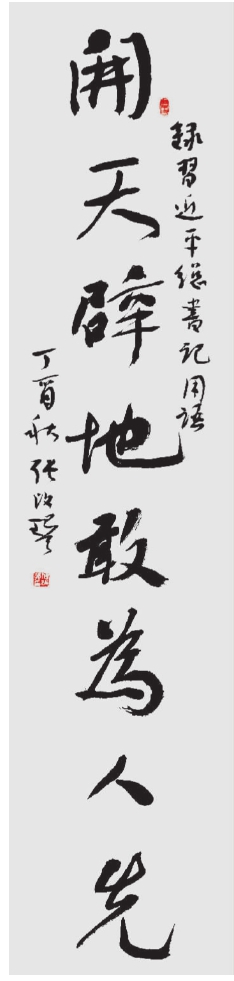 開天辟地敢為人先
錄習近平總書記用語
丁酉秋張改琴